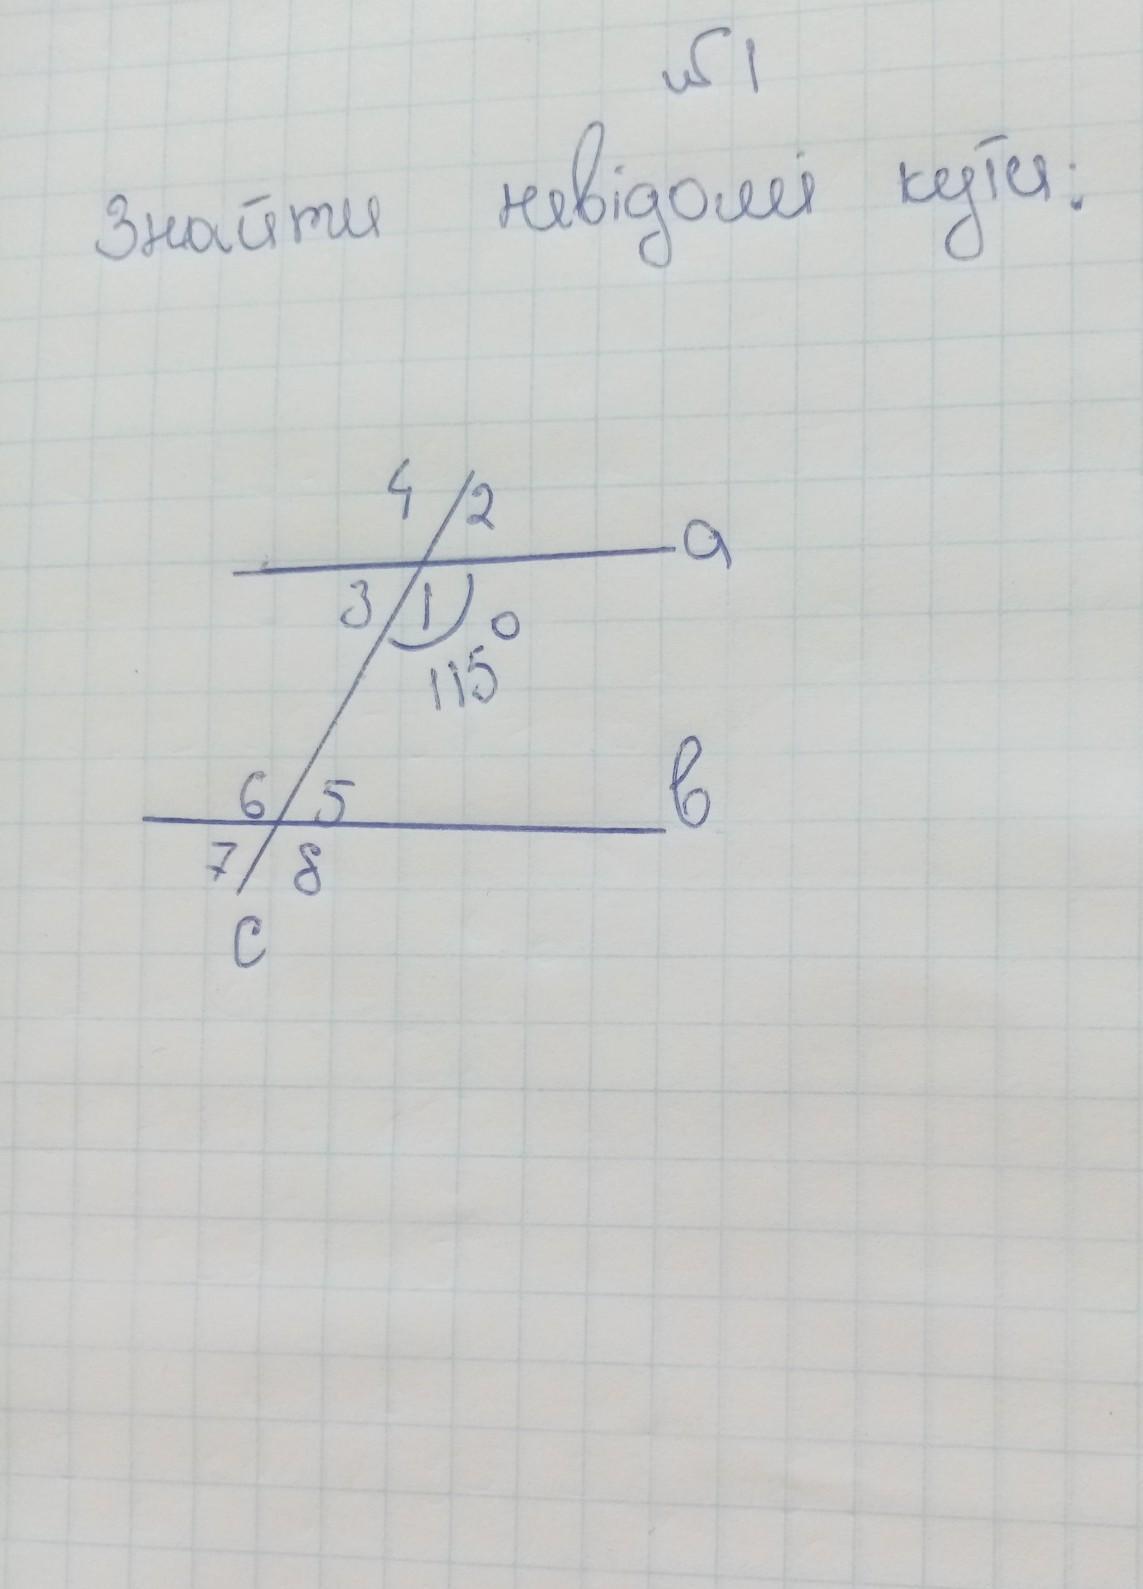 №1
Знайти невідомі кути:
4 2
a
3 1
115°
6 5
в
7 8
c